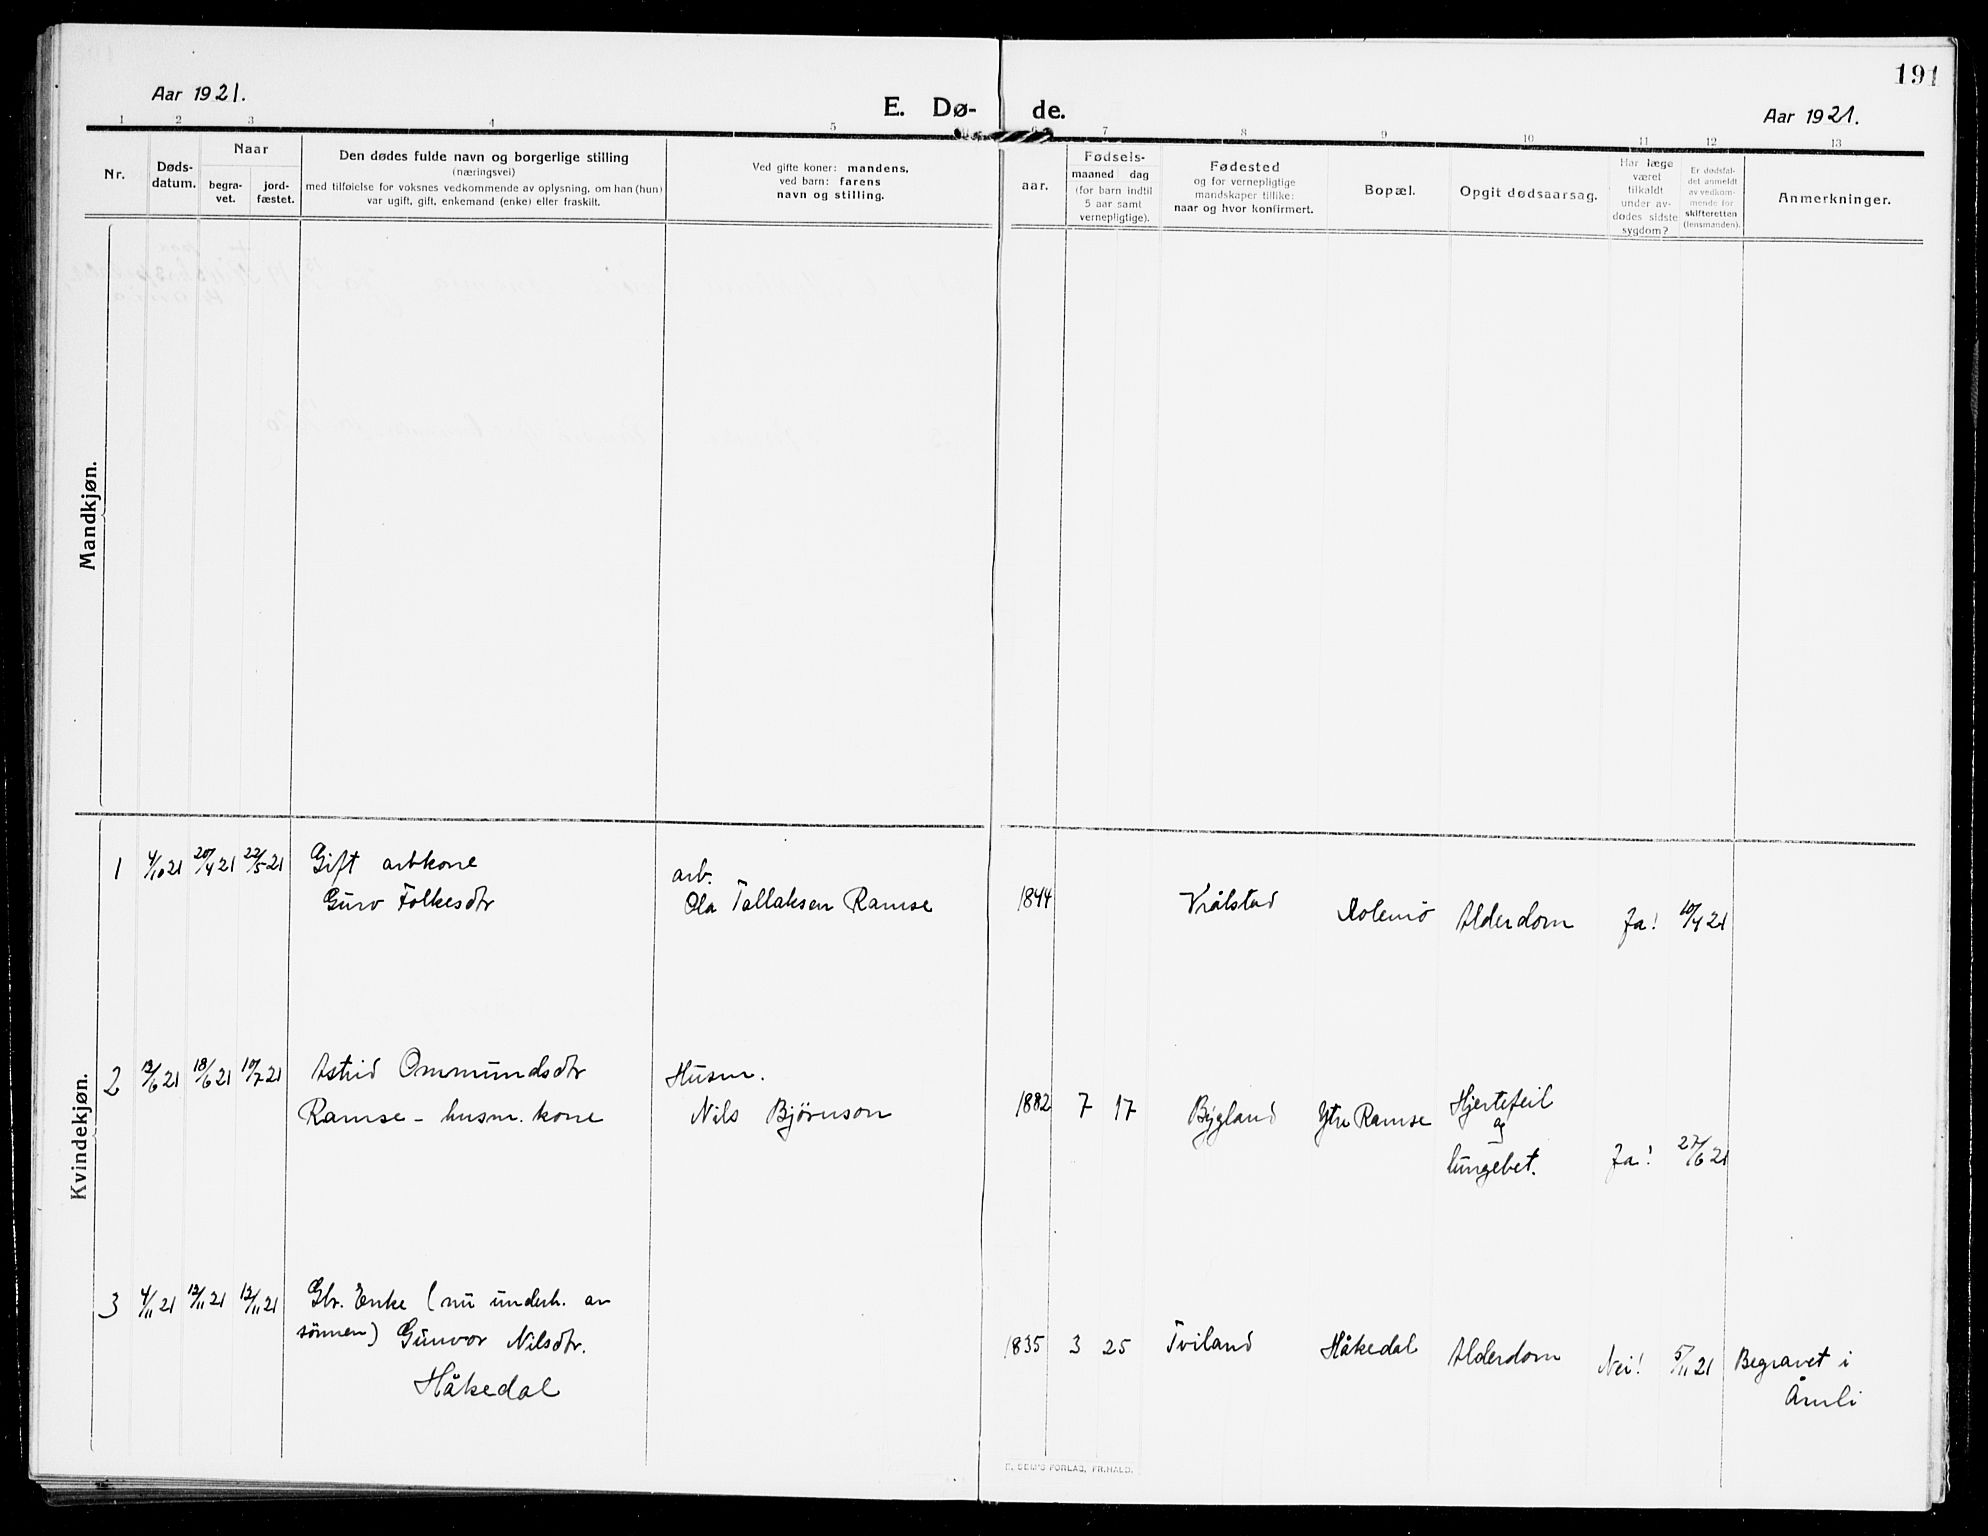 191
Aar 1921.
E. Dø-
de.
Aar 1921.
1 2 3 4 5 6 7 8 9 10 11 12 13
Nr.
Døds-
datum.
Naar
begra-
vet.
jord-
fæstet.
Den dødes fulde navn og borgerlige stilling
(næringsvei)
med tilføielse for voksnes vedkommende av oplysning, om han (hun)
var ugift, gift, enkemand (enke) eller fraskilt.
Ved gifte koner: mandens,
ved barn: farens
navn og stilling.
aar.
Fødsels-
maaned dag
(for barn indtil
5 aar samt
vernepligtige).
Fødested
og for vernepligtige
mandskaper tillike:
naar og hvor konfirmert.
Bopæl.
Opgit dødsaarsag.
Har læge
været
tilkaldt
under av-
dødes sidste
sygdom?
Er dødsfal-
det anmeldt
av vedkom-
mende for
skifteretten
(lensmanden).
Anmerkninger.
Mandkjøn.
Kvindekjøn.
1 20/4 21 22/5 21 Gift arbkone
Guro Folkesdtr
arb.
Ola Tallaksen Ramse
1844 Vrålstad Dolemo Alderdom Ja! 10/4 21
2 12/6 21 18/6 21 10/7 21 Astrid Ommundsdtr
Ramse - husm. kone
Husm.
Nils Bjørnson
1882 7 17 Bygland Ytre Ramse Hjertefeil
og
lungebet. Ja! 27/6 21
3 4/11 21 12/11 21 12/11 21 Gbr. Enke (nu underh. av
sönnen) Gunvor Nilsdtr.
Håkedal
1835 3 25 Tviland Håkedal Alderdom Nei! 5/11 21 Begravet i
Åmli
E. SEM'S FORLAG, FR.HALD.